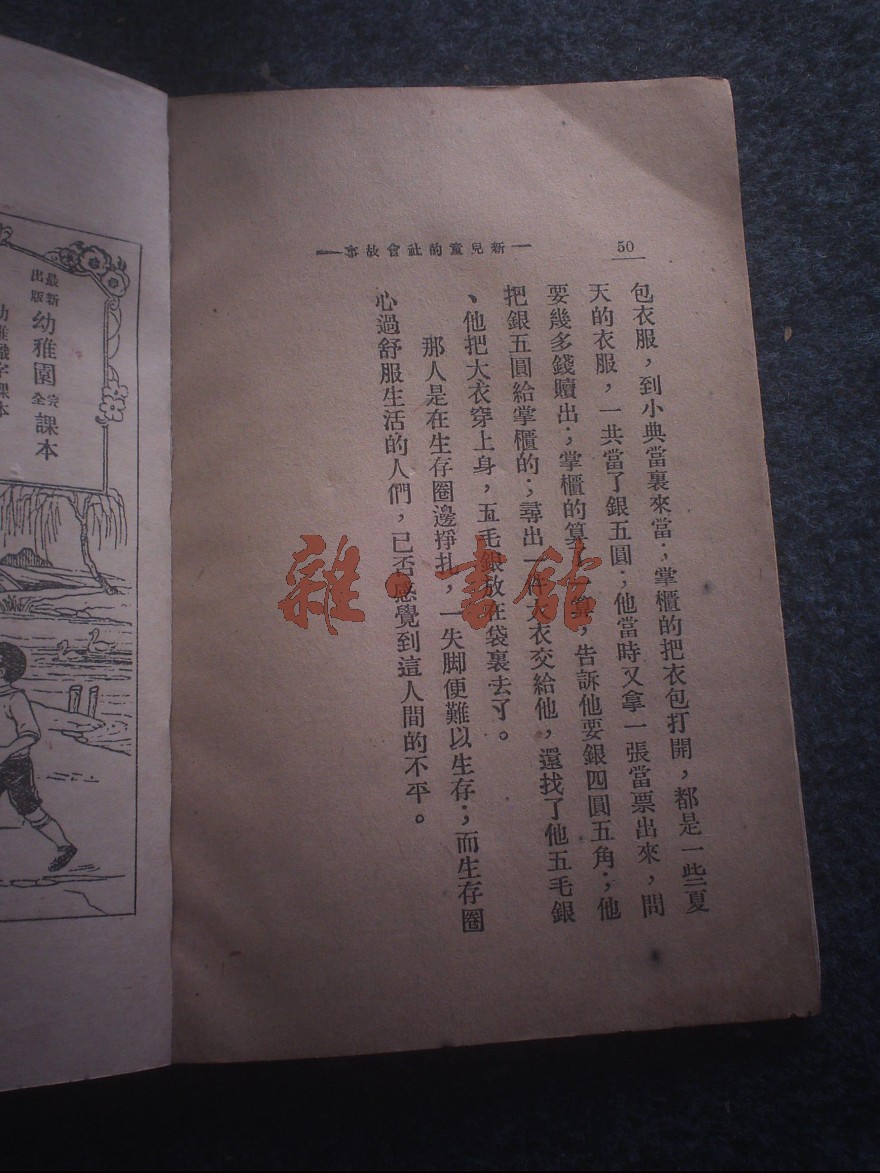 50
一新兒童的社會故事一
包衣服，到小典當裏來當；掌櫃的把衣包打開，都是一些夏
天的衣服，一共當了銀五圓；他當時又拿一張當票出來，問
要幾多錢贖出；掌櫃的算了一算，告訴他要銀四圓五角；他
把銀五圓給掌櫃的；尋出一件大衣交給他，還找了他五毛銀
、他把大衣穿上身，五毛銀放在袋裏去了。
那人是在生存圈邊掙扎，一失脚便難以生存；而生存圈
心過舒服生活的人們，已否感覺到這人間的不平。
雜·書館
最新出版
幼稚園
完全
課本
幼稚識字課本